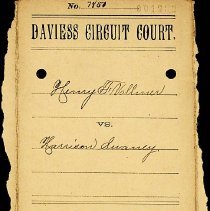 No. 7851
DAVIESS CIRCUIT COURT.
Henry F Vollmer
vs.
Harrison Swaney